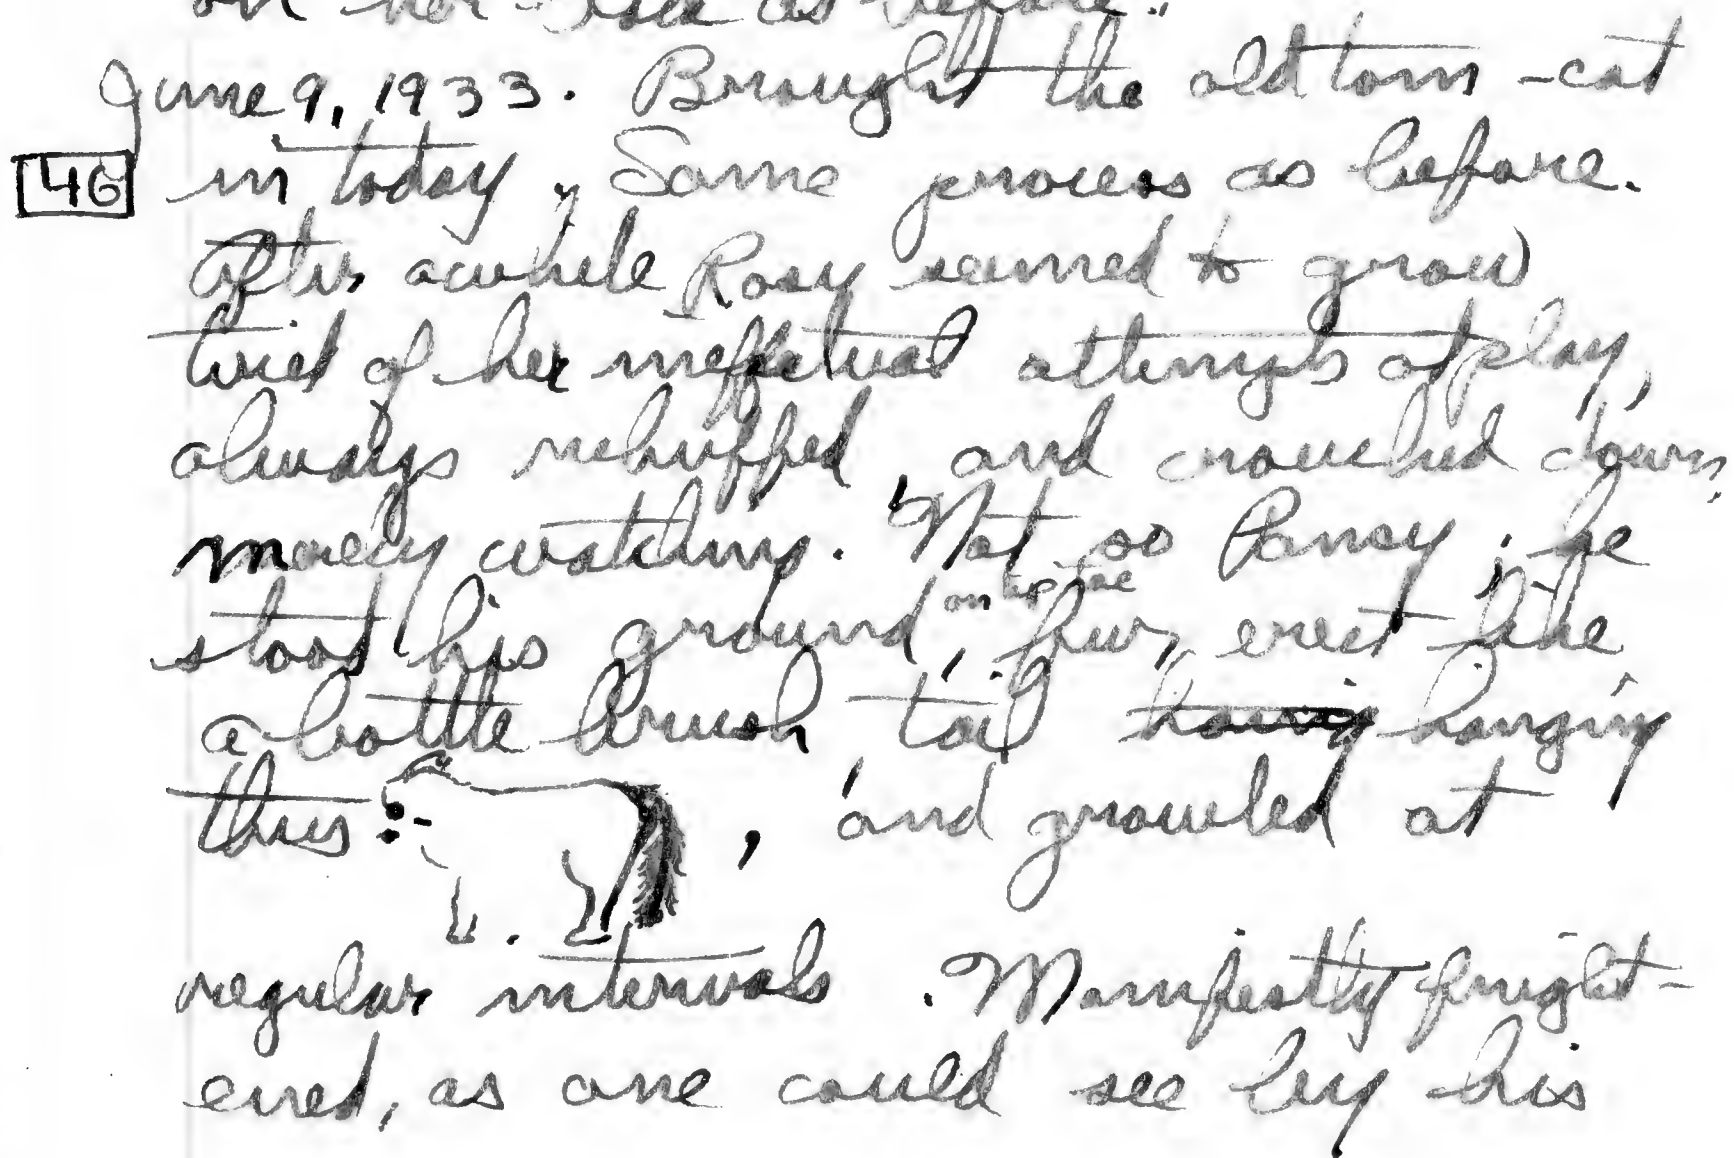 on her back as before.
June 9, 1933. Brought the old tom-cat
46 in today, Same process as before.
After awhile Rosy seemed to grow
tired of her ineffectual attempts at play,
always rebuffed, and crouched down,
merely watching. Not so Pansy; he
stood his ground, on tip toe, fur erect like
a bottle brush, tail having hanging
thus: , and growled at
regular intervals. Manifestly fright-
ened, as one could see by his